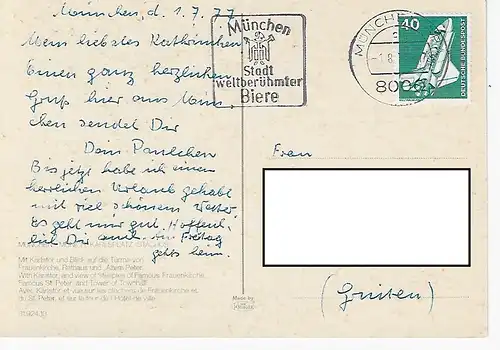 München, d. 1.7.77
Mein liebstes Kathrinchen
Einen ganz herzlichen
Gruß hier aus Mün-
chen sendet Dir
Dein Paulchen
Bis jetzt habe ich einen
herrlichen Urlaub gehabt
mit viel schönem Wetter.
Es geht mir gut. Hoffent-
lich Dir auch. Am Freitag
geht's heim.
Mit Karlstor und Blick auf die Türme von
Frauenkirche, Rathaus und „Altem Peter“
With Karlstor and view of steeples of Famous Frauenkirche,
Famous St. Peter, and Tower of Townhall
Avec Karlstor et vue sur les clochers de Frauenkirche et
du St. Peter, et sur la tour de l'Hôtel de ville
München
Stadt
weltberühmter
Biere
MÜNCHEN
40
DEUTSCHE BUNDESPOST
Frau
(Gruiten)
Made by
KRÜGER